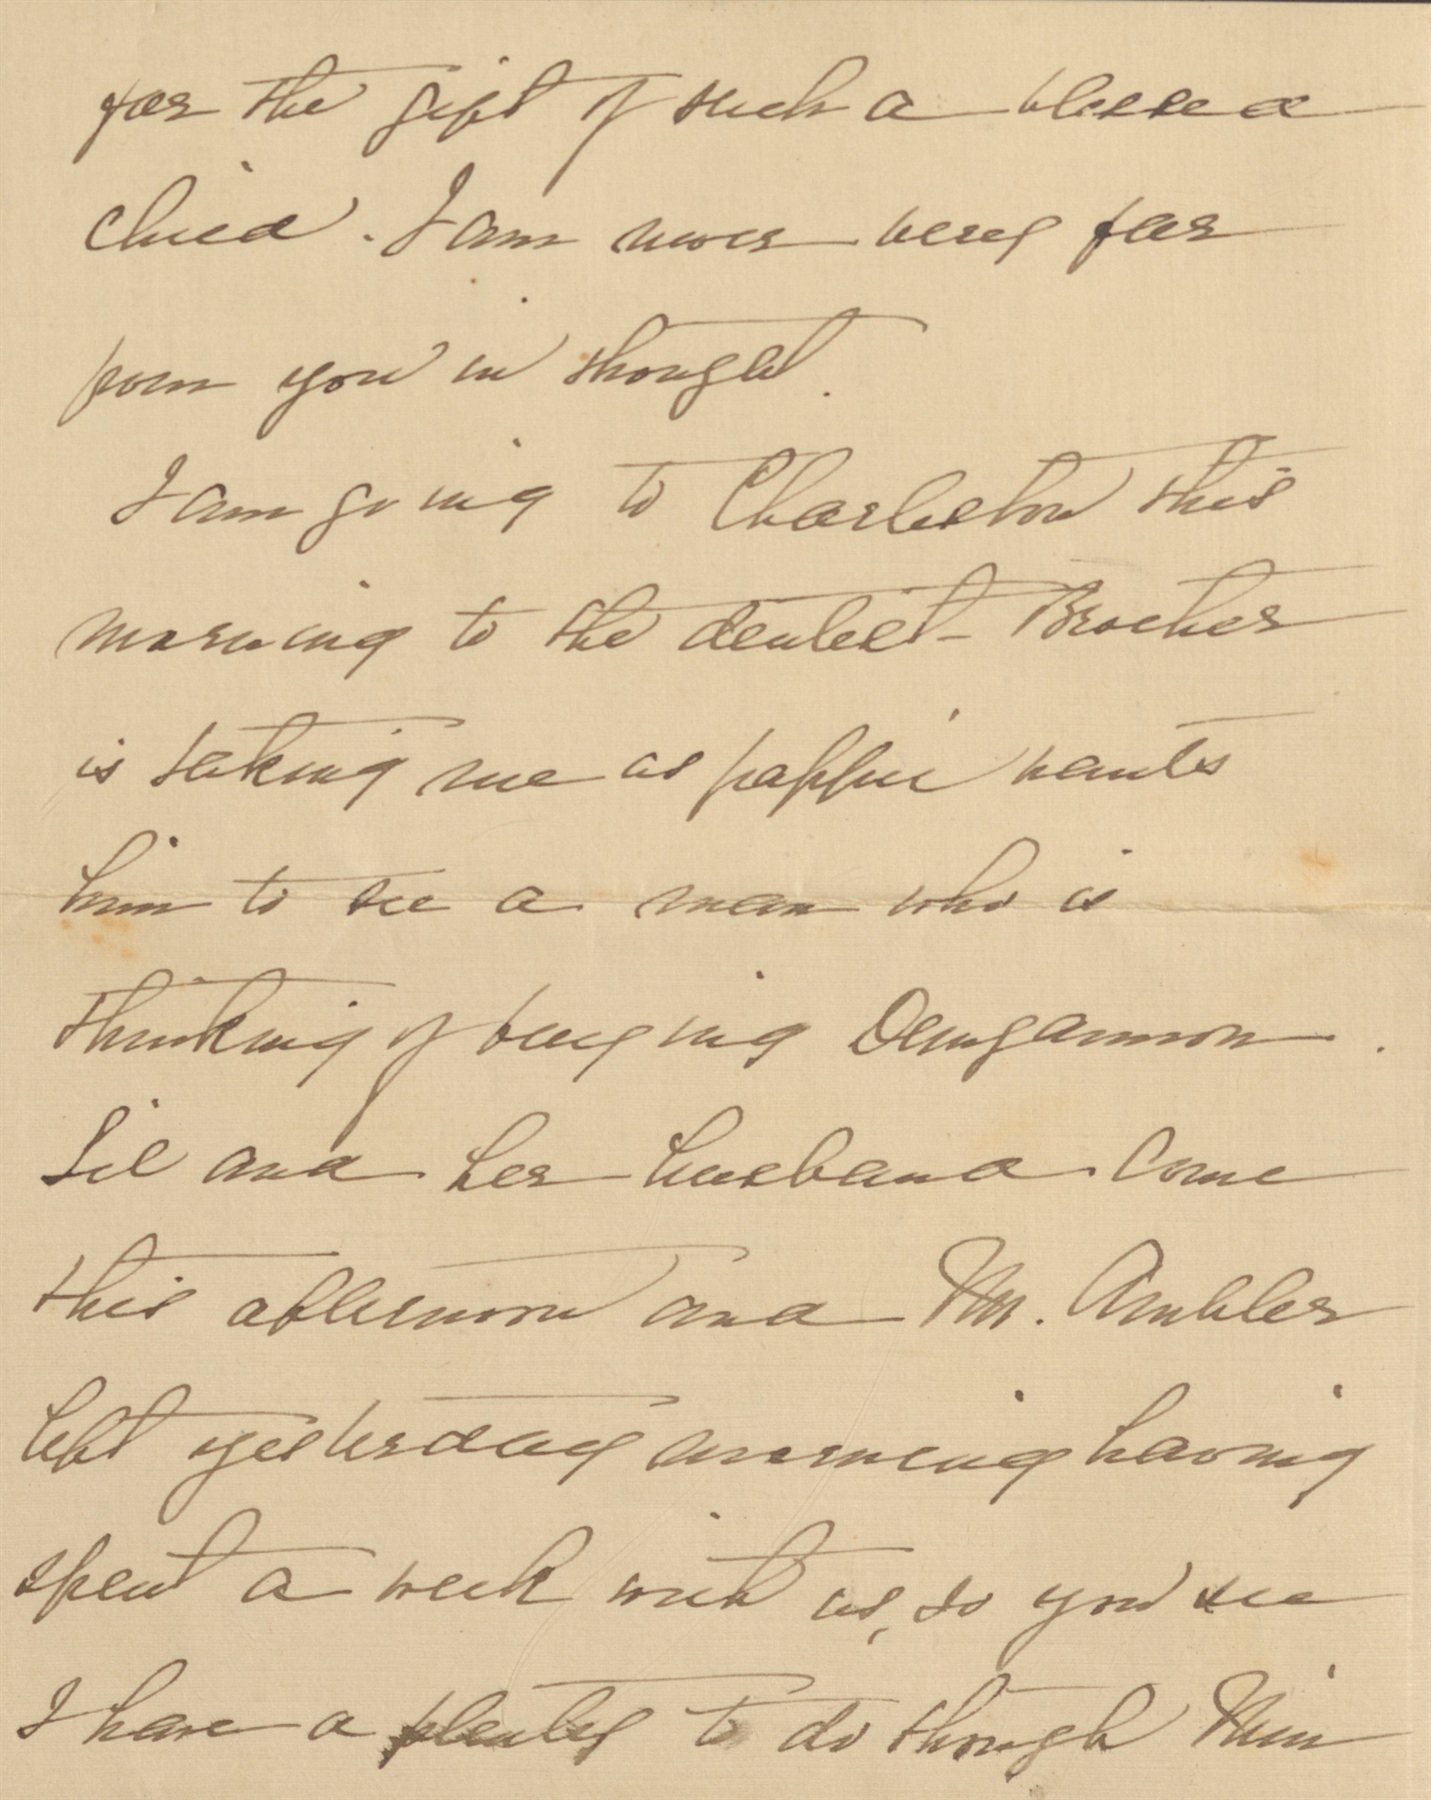 for the gift of such a blessed
child. I am never very far
from you in thought.
I am going to Charleston this
morning to the dentist - Brother
is taking me as pappie wants
him to see a man who is
thinking of buying Dungannon.
Lil and her husband come
this afternoon and Mr. Ambler
left yesterday morning having
spent a week with us, so you see
I have a plenty to do though Mim